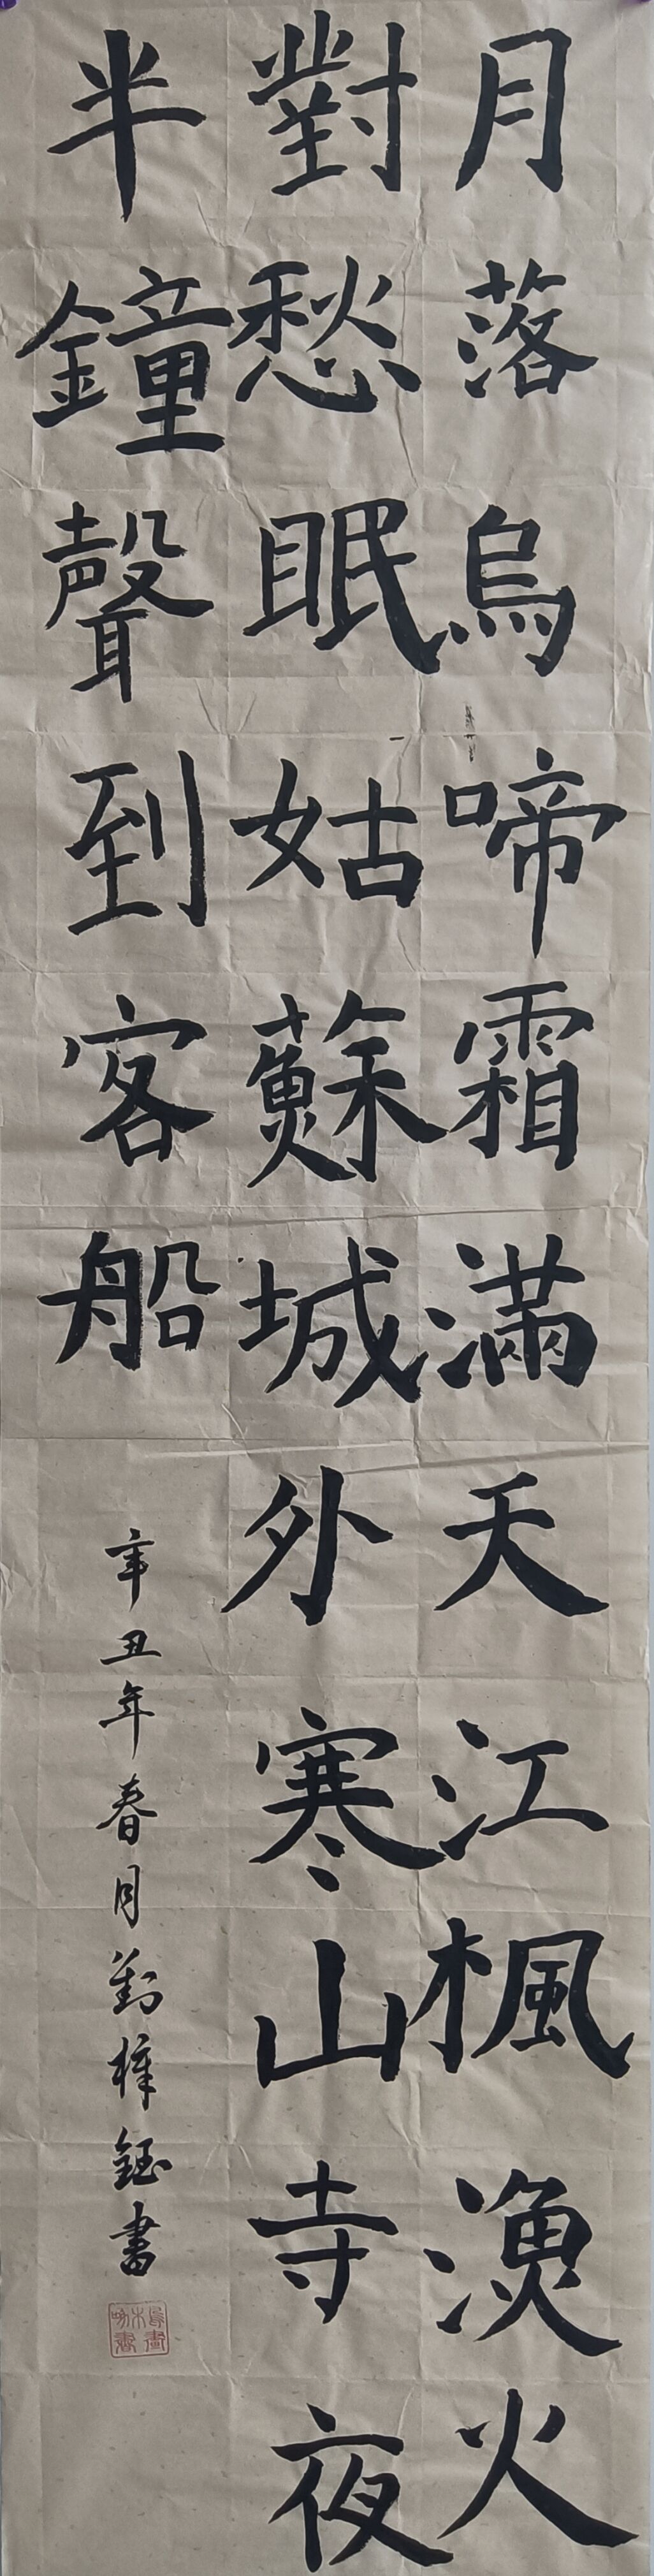 月落烏啼霜滿天江楓漁火
對愁眠姑蘇城外寒山寺夜
半鐘聲到客船
辛丑年春月劉樟鈺書